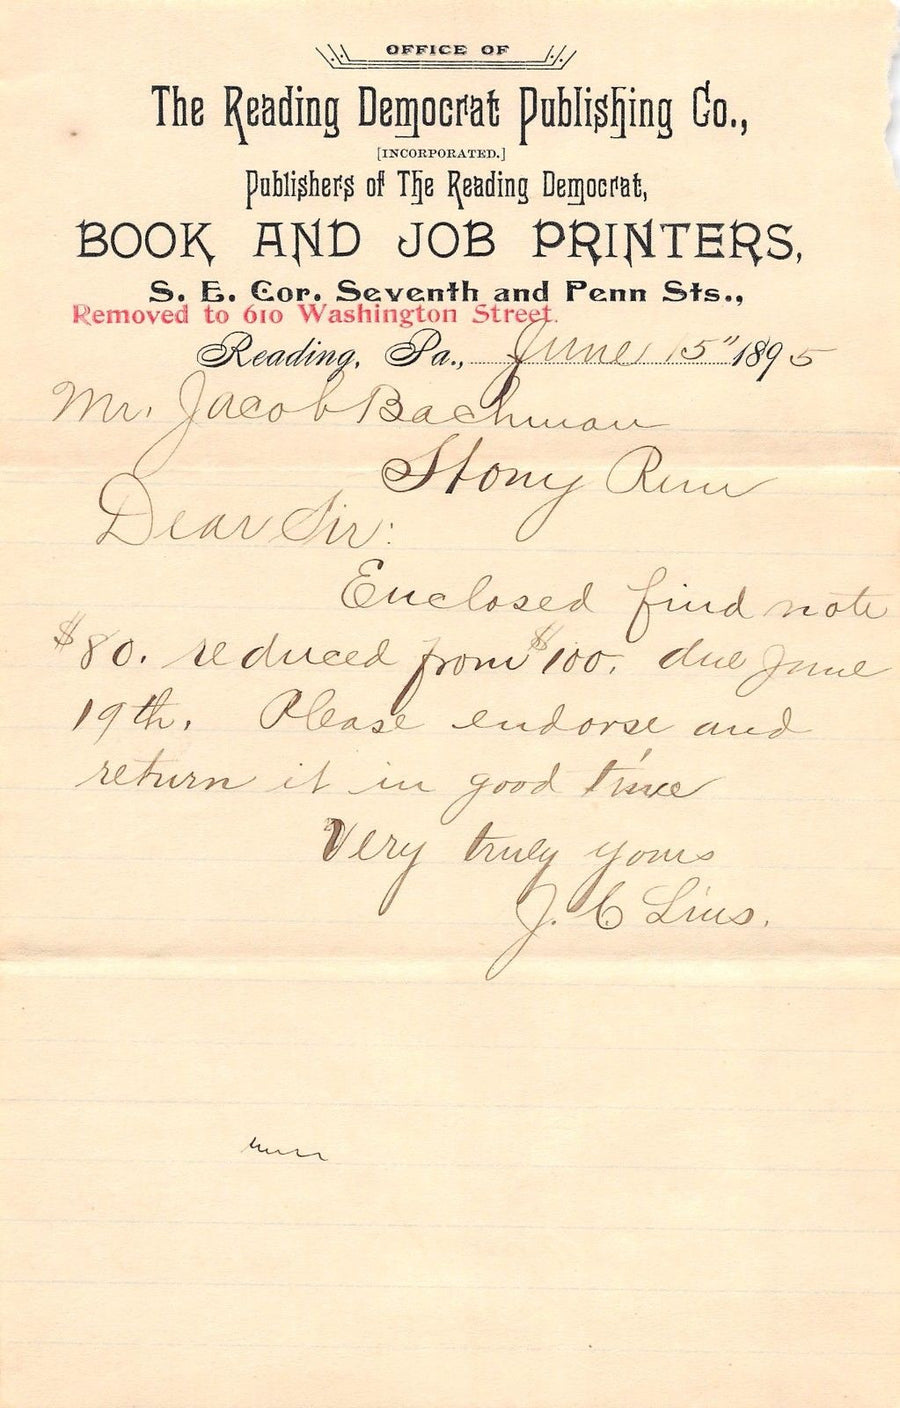 OFFICE OF
The Reading Democrat Publishing Co.,
[INCORPORATED.]
Publishers of The Reading Democrat,
BOOK AND JOB PRINTERS,
S. E. Cor. Seventh and Penn Sts.,
Removed to 610 Washington Street.
Reading, Pa., June 15" 1895
Mr. Jacob Bachman
Stony Run
Dear Sir:
Enclosed find note
$80. reduced from $100. due June
19th. Please endorse and
return it in good time
Very truly yours
J. C